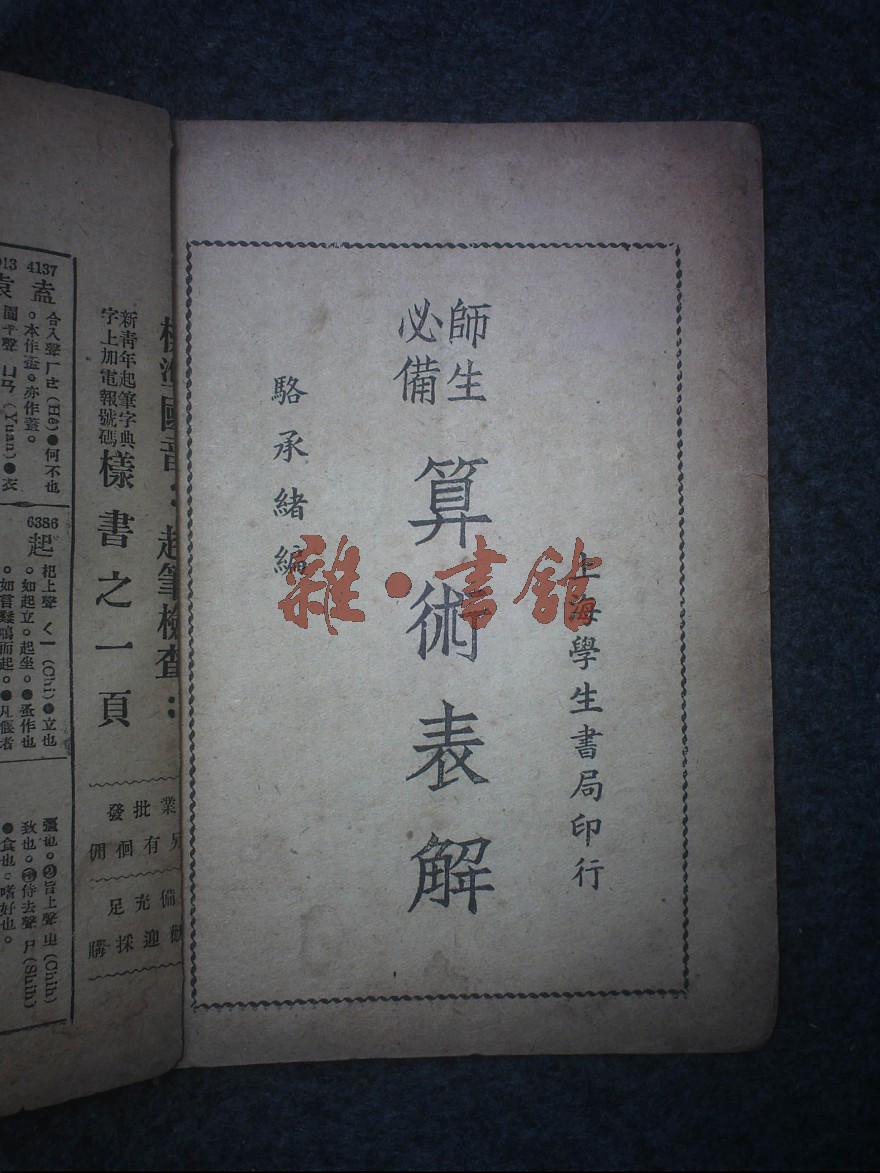 師生
必備
算術表解
駱承緒編
上海學生書局印行
雜·書館
新青年起筆字典
字上加電報號碼
樣書之一頁
業批發
有佣
備充足
迎採購
4137
盍
合入聲ㄏㄜ(Hê)●何不也
。本作盇。亦作盖。
袁
ㄩㄢ(Yuan)●衣
6386
起
杞上聲ㄑㄧ(Chi)●立也
。如起立。起坐。●蚤作也
。如言雞鳴而起。●凡偃者
旨上聲ㄓ(Chih)
致也。侍去聲ㄕ(Shih)
●食也。嗜好也。